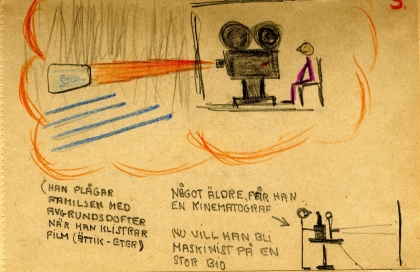 (HAN PLÅGAR
FAMILJEN MED
AVGRUNDSDOFTER
NÄR HAN KLISTRAR
FILM (ÄTTIK-ETER)
NÅGOT ÄLDRE, FÅR HAN
EN KINEMATOGRAF
NU VILL HAN BLI
MASKINIST PÅ EN
STOR BIO